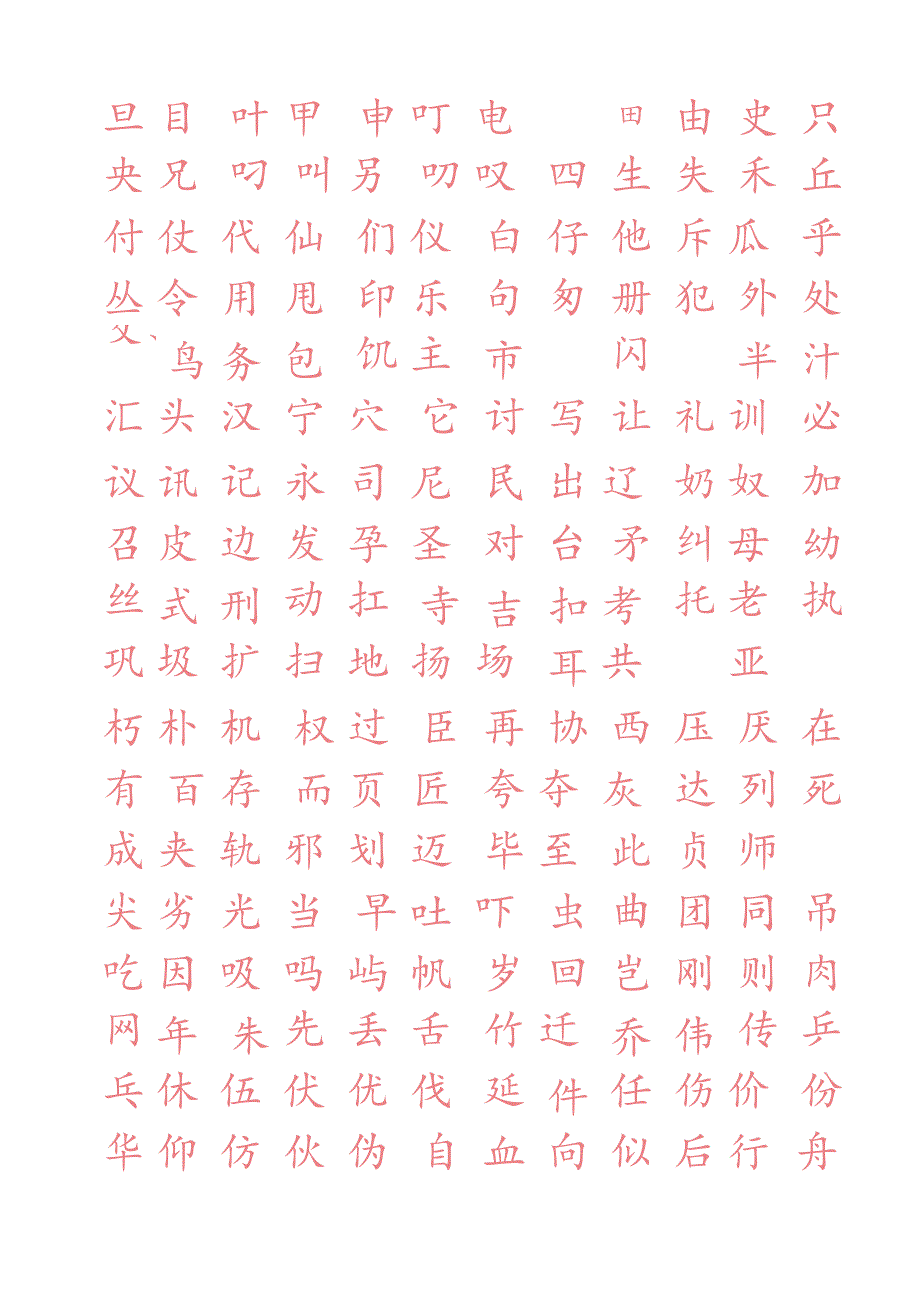 旦 目 叶 甲 申 叮 电 田 由 史 只
央 兄 叼 叫 另 叨 叹 四 生 失 禾 丘
付 仗 代 仙 们 仪 白 仔 他 斥 瓜 乎
丛 令 用 甩 印 乐 句 匆 册 犯 外 处
鸟 务 包 饥 主 市 闪 半 汁
汇 头 汉 宁 穴 它 讨 写 让 礼 训 必
议 讯 记 永 司 尼 民 出 辽 奶 奴 加
召 皮 边 发 孕 圣 对 台 矛 纠 母 幼
丝 式 刑 动 扛 寺 吉 扣 考 托 老 执
巩 圾 扩 扫 地 扬 场 耳 共 亚
朽 朴 机 权 过 臣 再 协 西 压 厌 在
有 百 存 而 页 匠 夸 夺 灰 达 列 死
成 夹 轨 邪 划 迈 毕 至 此 贞 师
尖 劣 光 当 早 吐 吓 虫 曲 团 同 吊
吃 因 吸 吗 屿 帆 岁 回 岂 刚 则 肉
网 年 朱 先 丢 舌 竹 迁 乔 伟 传 乒
乓 休 伍 伏 优 伐 延 件 任 伤 价 份
华 仰 仿 伙 伪 自 血 向 似 后 行 舟